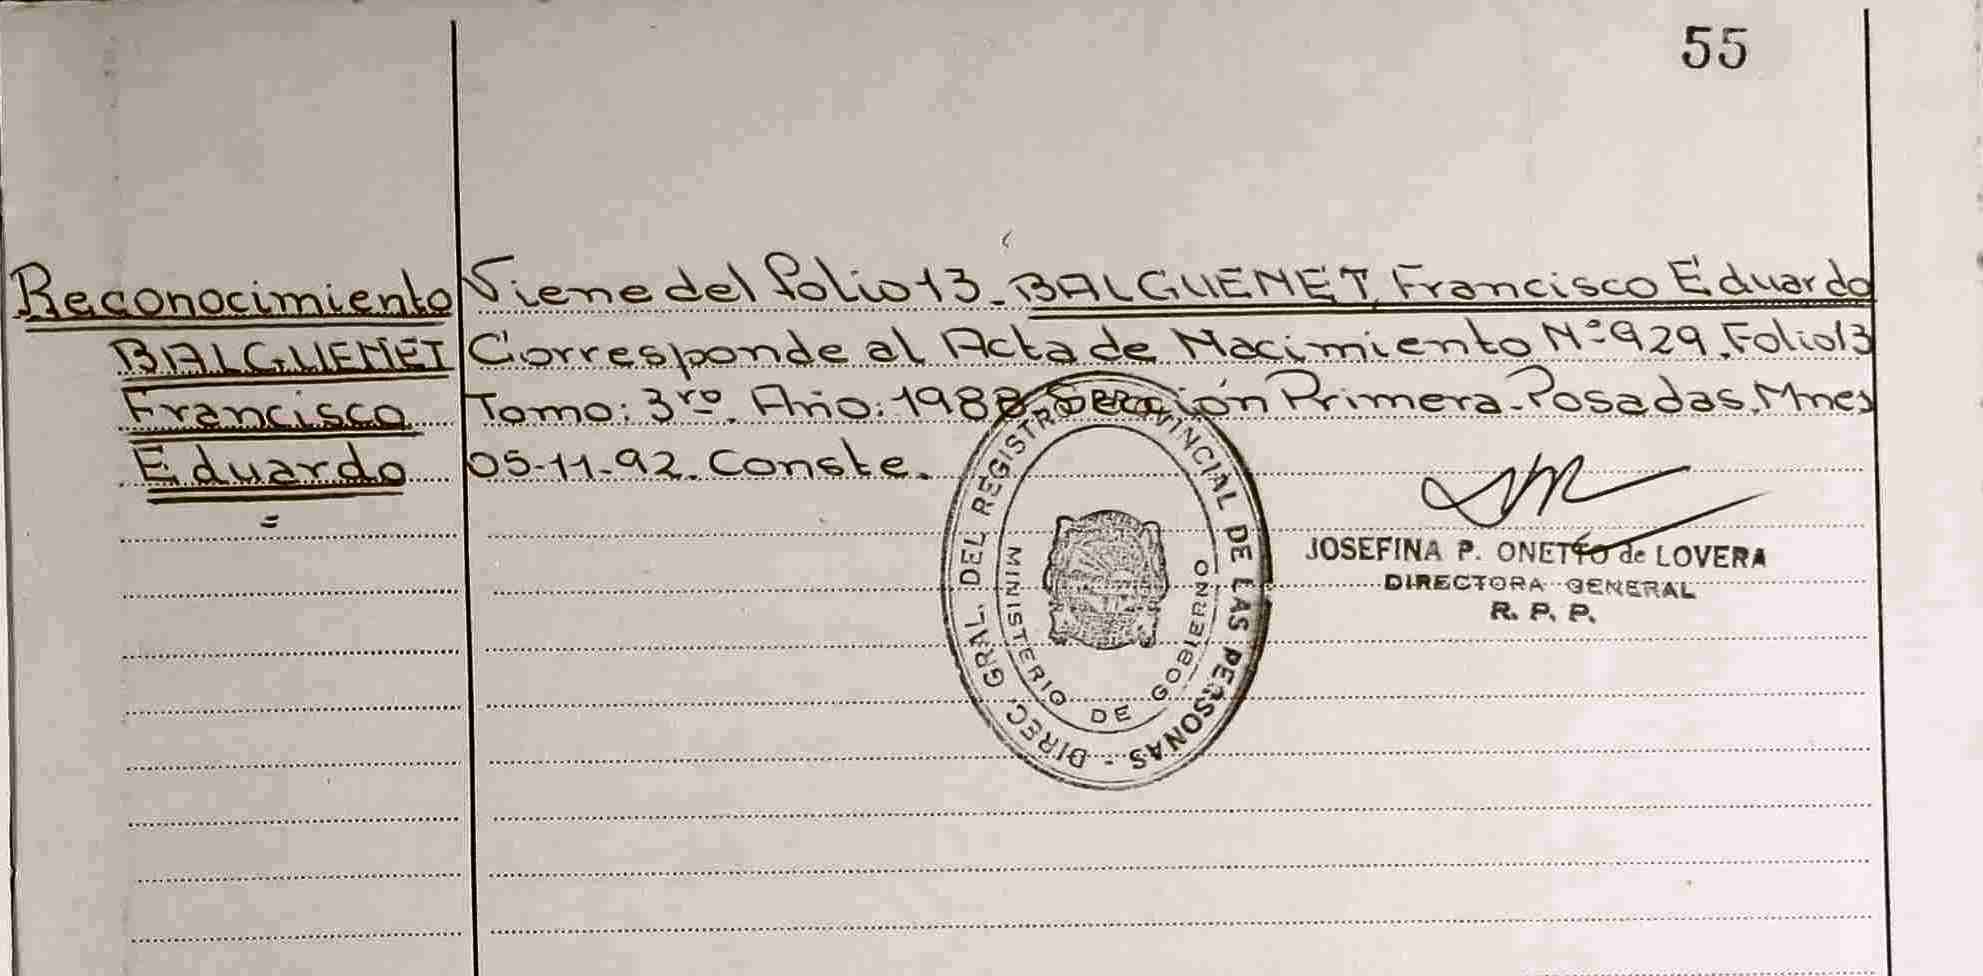 55
Reconocimiento
BALGUENET
Francisco
Eduardo
=
Viene del folio 13. BALGUENET, Francisco Eduardo
Corresponde al Acta de Nacimiento N° 929. Folio 13
Tomo: 3ro. Año: 1988. Sección Primera. Posadas, Mnes
05-11-92. Conste.
DIREC. GRAL. DEL REGISTRO PROVINCIAL DE LAS PERSONAS -
MINISTERIO DE GOBIERNO
JOSEFINA P. ONETTO de LOVERA
DIRECTORA GENERAL
R. P. P.